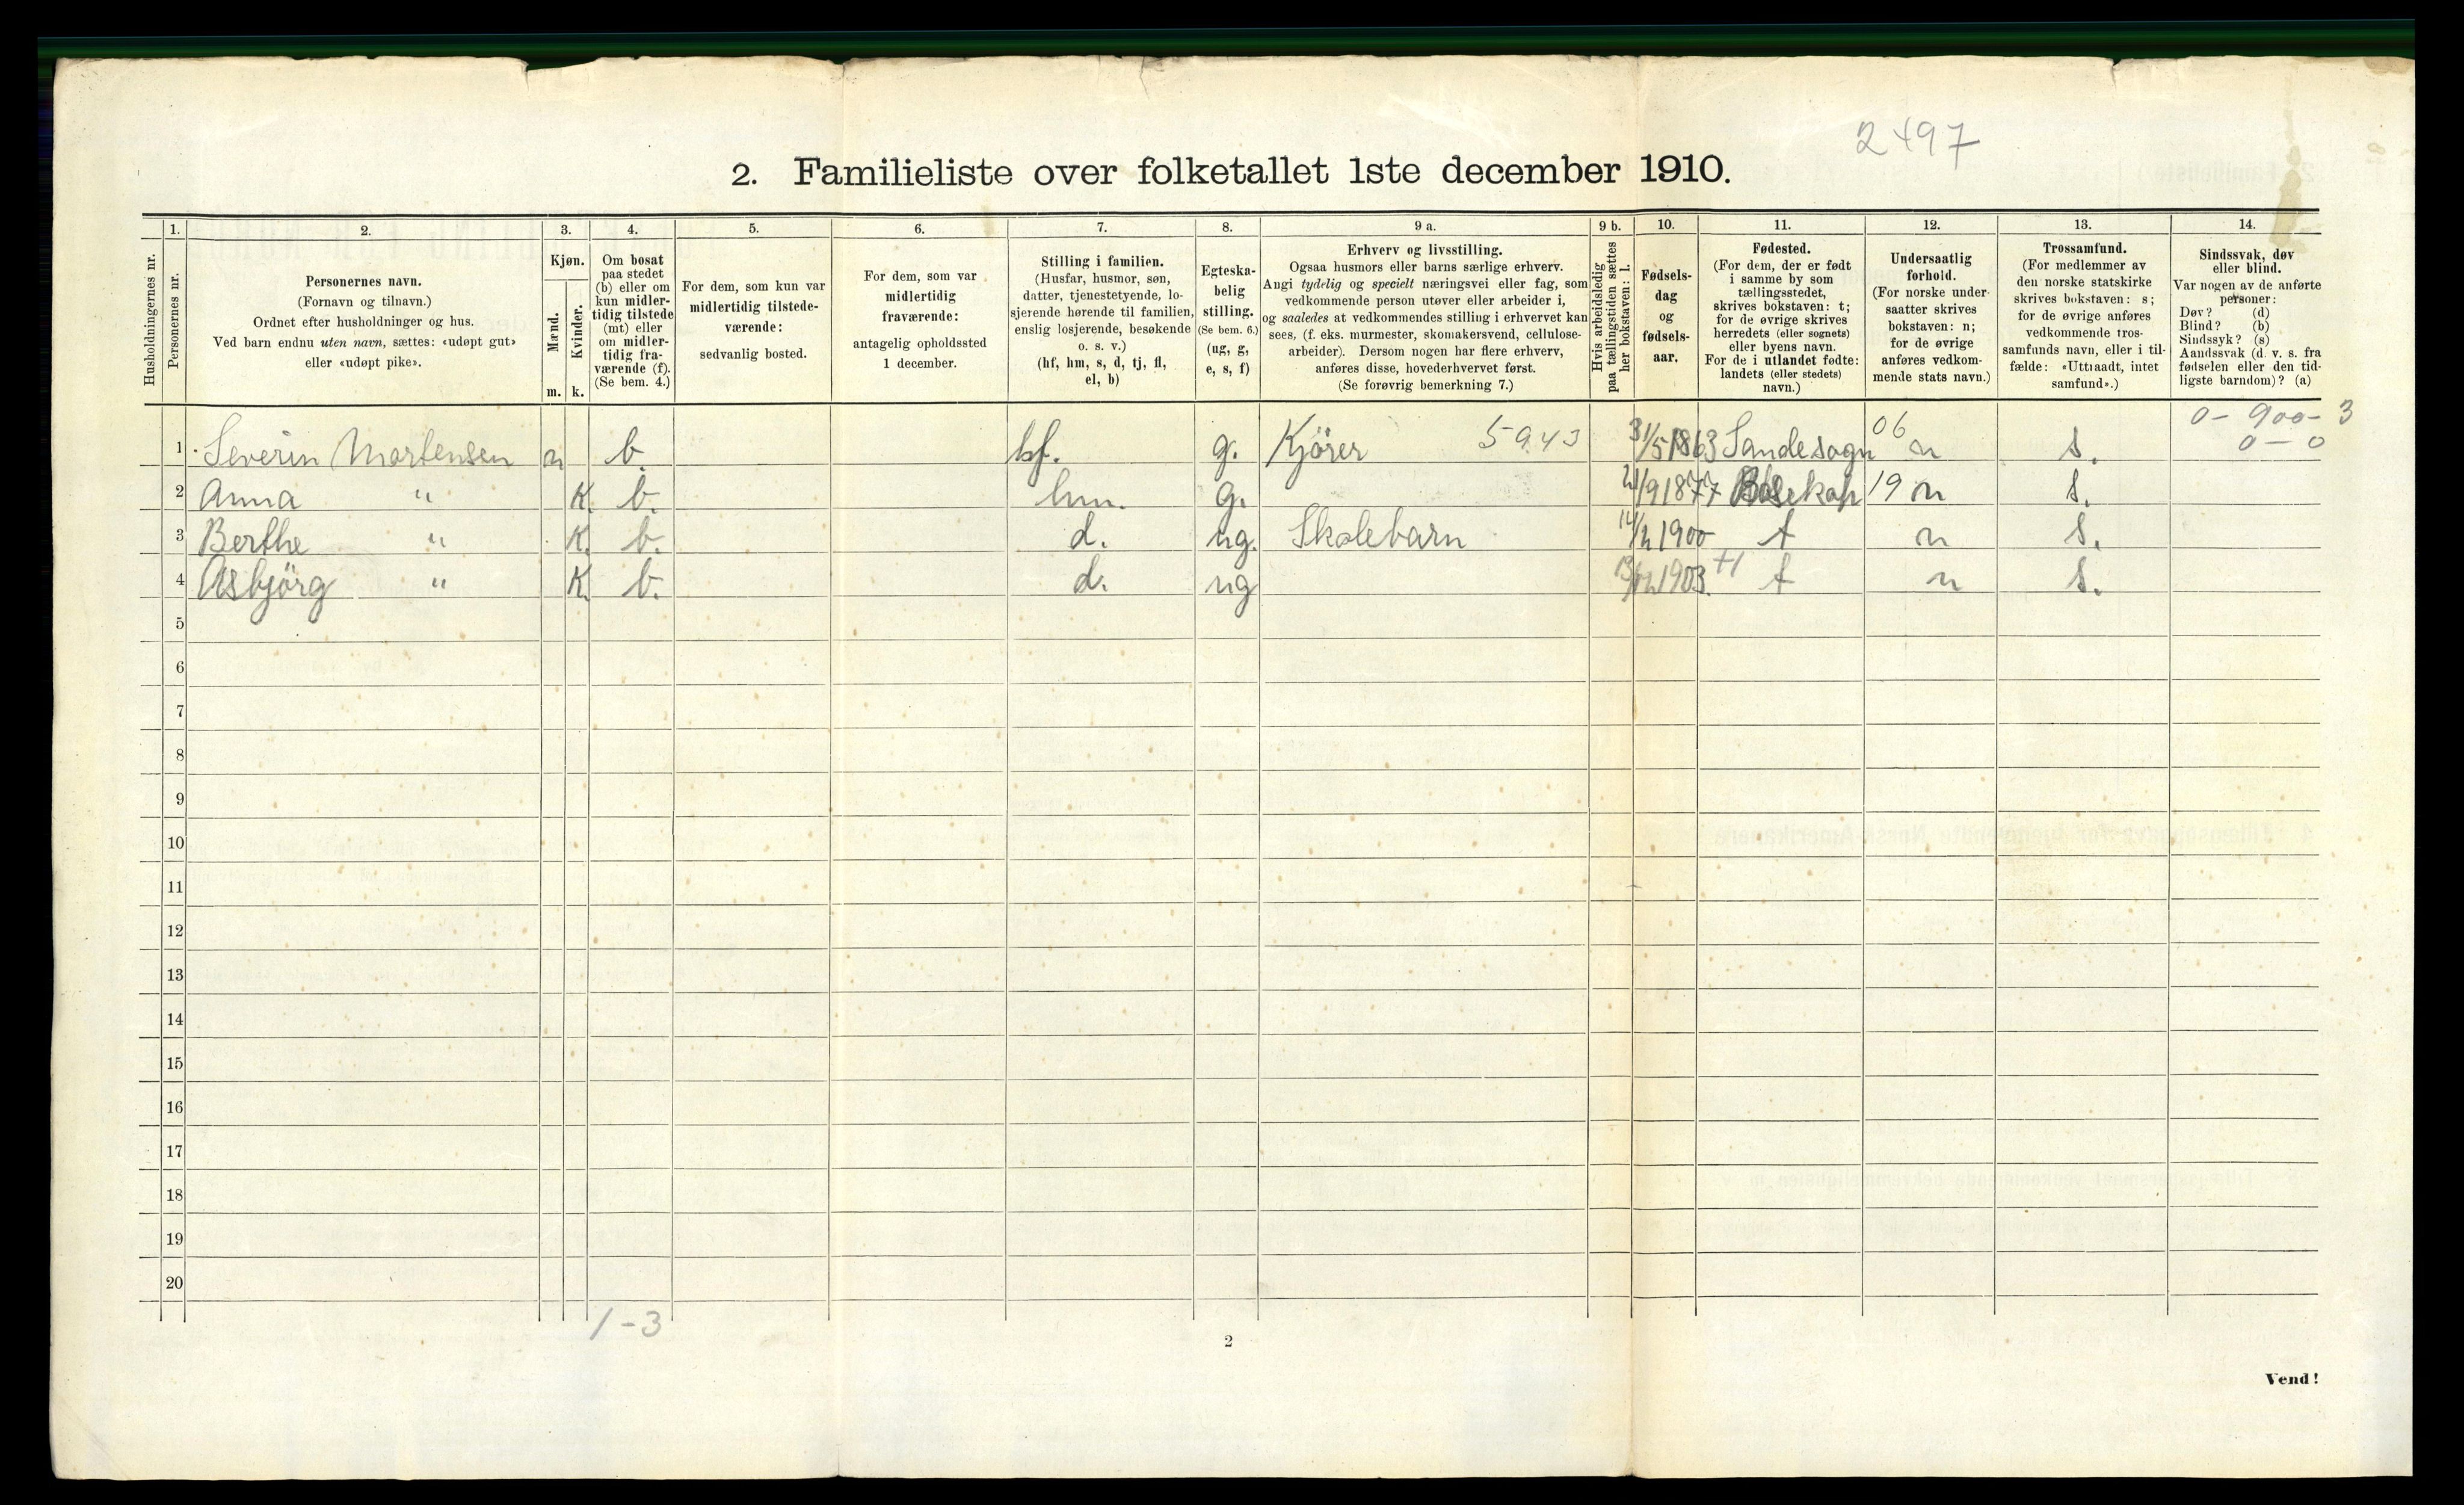 2497
2. Familieliste over folketallet 1ste december 1910.
Husholdningernes nr.
1. Personernes nr.
2. Personernes navn.
(Fornavn og tilnavn.)
Ordnet efter husholdninger og hus.
Ved barn endnu uten navn, sættes: «udøpt gut»
eller «udøpt pike».
3. Kjøn.
Mænd. m.
Kvinder. k.
4. Om bosat
paa stedet
(b) eller om
kun midler-
tidig tilstede
(mt) eller
om midler-
tidig fra-
værende (f).
(Se bem. 4.)
5. For dem, som kun var
midlertidig tilstede-
værende:
sedvanlig bosted.
6. For dem, som var
midlertidig
fraværende:
antagelig opholdssted
1 december.
7. Stilling i familien.
(Husfar, husmor, søn,
datter, tjenestetyende, lo-
sjerende hørende til familien,
enslig losjerende, besøkende
o. s. v.)
(hf, hm, s, d, tj, fl,
el, b)
8. Egteska-
belig
stilling.
(Se bem. 6.)
(ug, g,
e, s, f)
9 a. Erhverv og livsstilling.
Ogsaa husmors eller barns særlige erhverv.
Angi tydelig og specielt næringsvei eller fag, som
vedkommende person utøver eller arbeider i,
og saaledes at vedkommendes stilling i erhvervet kan
sees, (f. eks. murmester, skomakersvend, cellulose-
arbeider). Dersom nogen har flere erhverv,
anføres disse, hovederhvervet først.
(Se forøvrig bemerkning 7.)
9 b. Hvis arbeidsledig
paa tællingstiden sættes
her bokstaven: l.
10. Fødsels-
dag
og
fødsels-
aar.
11. Fødested.
(For dem, der er født
i samme by som
tællingsstedet,
skrives bokstaven: t;
for de øvrige skrives
herredets (eller sognets)
eller byens navn.
For de i utlandet fødte:
landets (eller stedets)
navn.)
12. Undersaatlig
forhold.
(For norske under-
saatter skrives
bokstaven: n;
for de øvrige
anføres vedkom-
mende stats navn.)
13. Trossamfund.
(For medlemmer av
den norske statskirke
skrives bokstaven: s;
for de øvrige anføres
vedkommende tros-
samfunds navn, eller i til-
fælde: «Uttraadt, intet
samfund».)
14. Sindssvak, døv
eller blind.
Var nogen av de anførte
personer:
Døv? (d)
Blind? (b)
Sindssyk? (s)
Aandssvak (d. v. s. fra
fødselen eller den tid-
ligste barndom)? (a)
0 - 900 - 3
0 - 0
1 Severin Mortensen m b. hf. g. Kjörer 5943 31/5 1863 Sandesogn 06 n s.
2 Anna " K. b. hm. g. 21/9 1877 19 n s.
3 Berthe " K. b. d. ug. Skolebarn 14/2 1900 t n s.
4 Asbjörg " K. b. d. ug 1903. +1 t n s.
5
6
7
8
9
10
11
12
13
14
15
16
17
18
19
20
1 - 3
2
Vend!